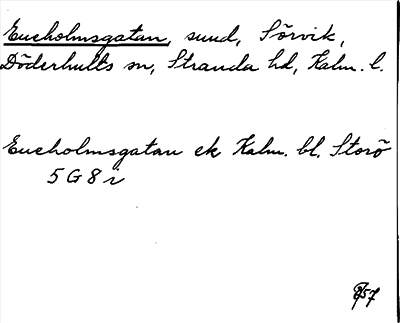 Eneholmsgatan, sund, Sörvik,
Döderhults sn, Stranda hd, Kalm. l.
Eneholmsgatan ek Kalm. bl. Storö
5 G 8 i
57